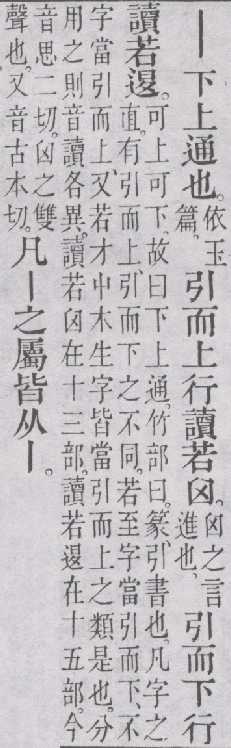 丨下上通也。依玉
篇。
引而上行讀若囟。囟之言
進也、
引而下行
讀若𨓤。可上可下。故曰下上通。竹部曰。篆、引書也。凡字之
直。有引而上、引而下之不同。若至字當引而下、不
字當引而上、又若才中木生字皆當引而上之類是也。分
用之則音讀各異。讀若囟在十三部。讀若𨓤在十五部。今
音思二切。囟之雙
聲也。又音古本切。
凡丨之屬皆从丨。